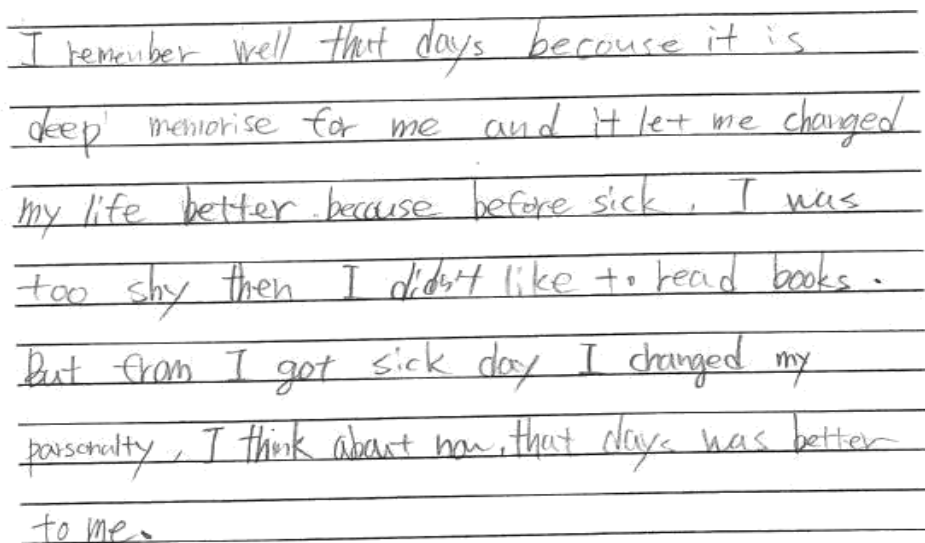 I remember well that days becouse it is
deep memorise for me and it let me changed
my life better because before sick, I was
too shy then I didn't like to read books.
But from I got sick day I changed my
parsonalty, I think about now, that days was better
to me.